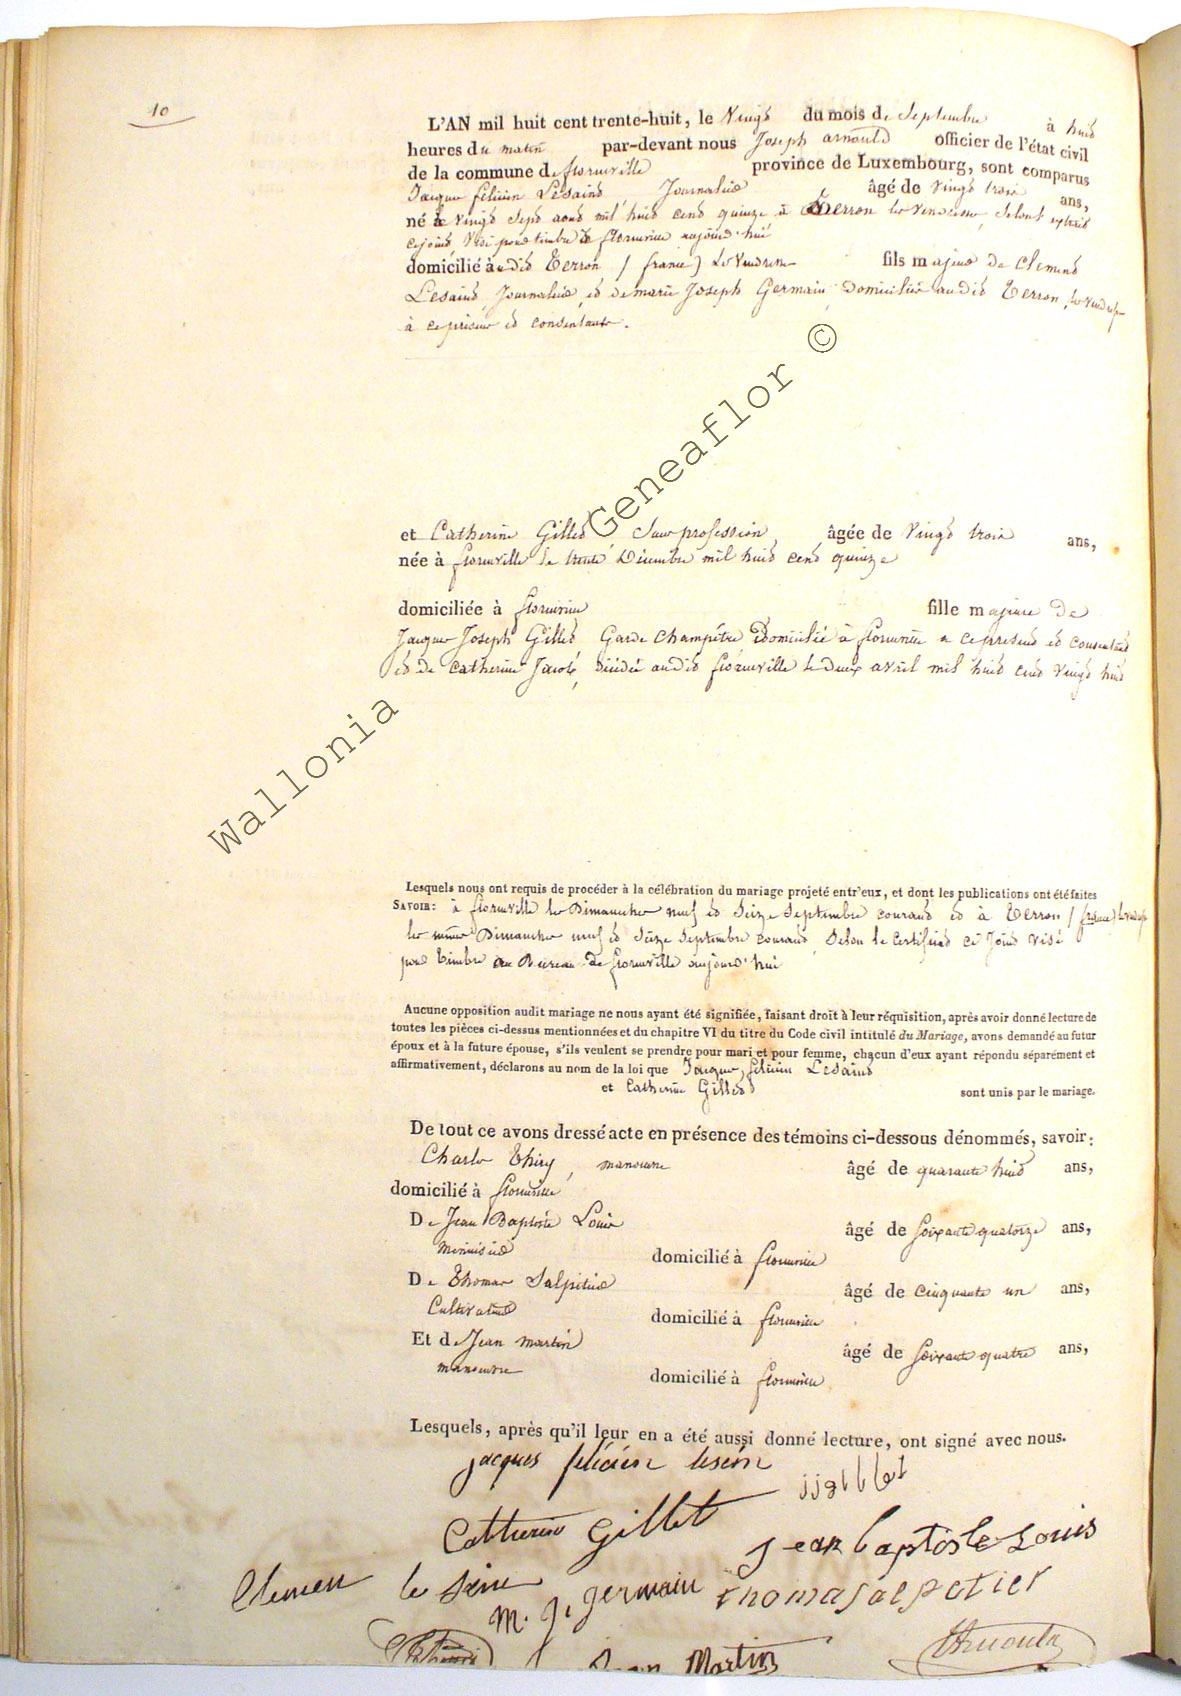 10
L'AN mil huit cent trente-huit, le Vingt du mois de Septembre à huit
heures du matin par-devant nous Joseph arnould officier de l'état civil
de la commune de florenville province de Luxembourg, sont comparus
Jacques félicien Lesaint Journalier âgé de Vingt trois ans,
né le Vingt Sept aout mil huit cent quinze à Terron les Vendresse, Selont extrait
cejoint Visé pour timbre à florenville aujourd'hui
domicilié audit Terron (france) Les Vendresse fils majeur de Clement
Lesaint, Journalier, et de marie Joseph Germain, domiciliés audit Terron, les Vendresse
à ce présent et consentants.
et Catherine Gillet, Sans profession, âgée de Vingt trois ans,
née à florenville le trente Décembre mil huit cent quinze
domiciliée à florenville fille majeure De
Jacques Joseph Gillet Garde champêtre Domicilié à florenville a ce present et consentant
et de Catherine Jacob, décédée audit florenville le deux avril mil huit cent Vingt huit
Lesquels nous ont requis de procéder à la célébration du mariage projeté entr'eux, et dont les publications ont été faites
SAVOIR: à florenville les Dimanches neuf et Seize Septembre courant et à Terron (france) les Vendresse
les même Dimanches neuf et Seize Septembre courant, Selon le Certificat ci Joint visé
pour timbre au Bureau de florenville aujourd'hui
Aucune opposition audit mariage ne nous ayant été signifiée, faisant droit à leur réquisition, après avoir donné lecture de
toutes les pièces ci-dessus mentionnées et du chapitre VI du titre du Code civil intitulé du Mariage, avons demandé au futur
époux et à la future épouse, s'ils veulent se prendre pour mari et pour femme, chacun d'eux ayant répondu séparément et
affirmativement, déclarons au nom de la loi que Jacques félicien Lesaint
et Catherine Gillet sont unis par le mariage.
De tout ce avons dressé acte en présence des témoins ci-dessous dénommés, savoir:
Charles Thiry, manouvre âgé de quarante huit ans,
domicilié à florenville
De Jean Baptiste Louis âgé de Soixante quatorze ans,
Menuisier domicilié à florenville
De Thomas Salpétier âgé de Cinquante un ans,
Cultivateur domicilié à florenville
Et de Jean martin âgé de Soixante quatre ans,
manouvre domicilié à florenville
Lesquels, après qu'il leur en a été aussi donné lecture, ont signé avec nous.
jacques félicien lesein
jjgillet
Catherine Gillet
Jean baptiste Louis
Clemen le sene
M. J. germain
thomas salpetier
Jean Martin
Arnould
Wallonia Geneaflor ©